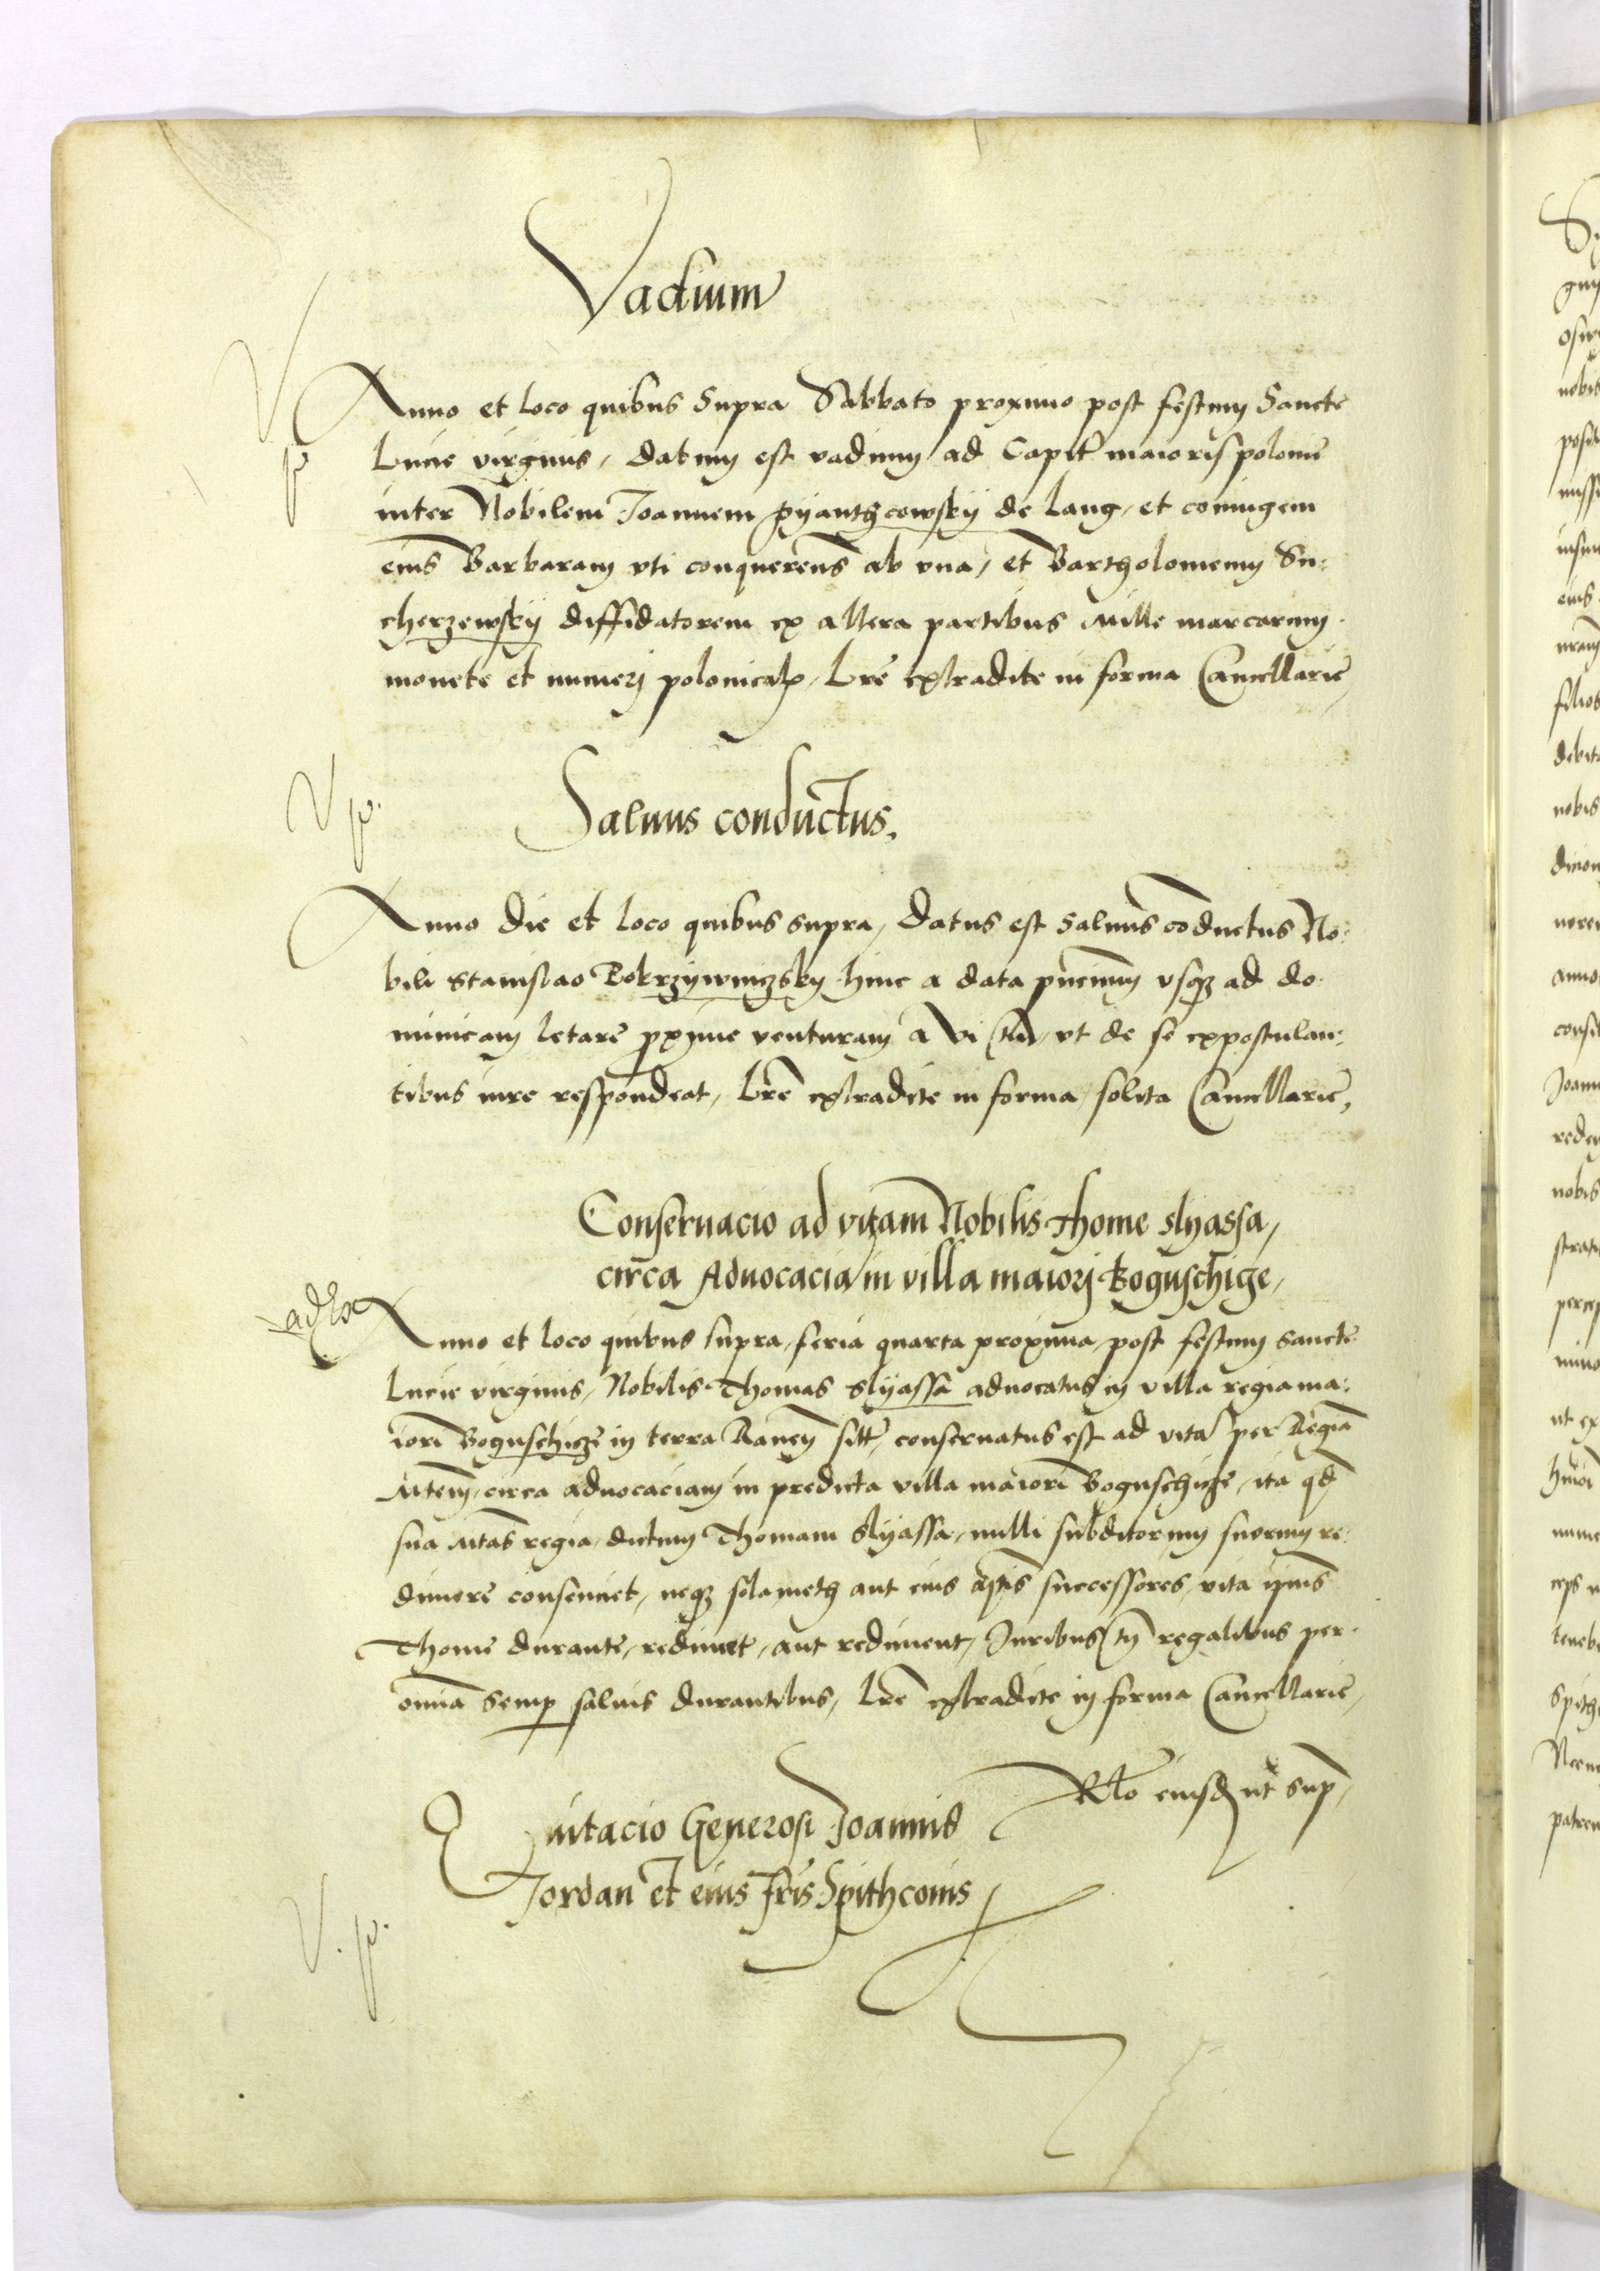 Vadium
Anno et loco quibus Supra Sabbato proximo post festum Sancte
Lucie virginis, datum est vadium ad Capit maioris polonie
inter Nobilem Joannem pyanthcowsky de Lang, et coniugem
eius Barbaram vti conquerens ab vna, et Bartholomeum Su:
cherzewsky diffidatorem ex altera partibus Mille marcarum
monete et numeri polonical, Lre extradite in forma Cancellarie,
Saluus conductus.
Anno die et loco quibus supra, datus est Saluus coductus No:
bili Stanislao Bokrzywniczsky hinc a data pncium vsqz ad do
minicam letare pxime venturam a vi tn, vt de se expostulan:
tibus iure respondeat, Lre extradite in forma solita Cancellarie,
Conseruacio ad vitam Nobilis Thome slyassa,
circa Aduocacia in villa maiorj Boguschicze,
Anno et loco quibus supra, feria quarta proxima, post festum sancte
Lucie virginis, Nobilis Thomas Slyassa aduocatus in villa regia ma:
iori Boguschicze in terra Rauen sitt, conseruatus est ad vita per Regia
Mtem, circa aduocaciam in predicta villa maiori Boguschicze, ita qd
sua Mtas regia, dictum Thomam Slyassa, nulli subditorum suorum re:
dimere consenciet, neqz solameth aut eius aptis successores, vita ipius
Thome durante, redimet, aut rediment, Juribus tn regalibus per
omnia semp saluis durantibus, Lre extradite in forma Cancellarie,
Rlo eiusd ut sup,
Quitacio Generosi Joannis
Jordan et eius fris Spithconis